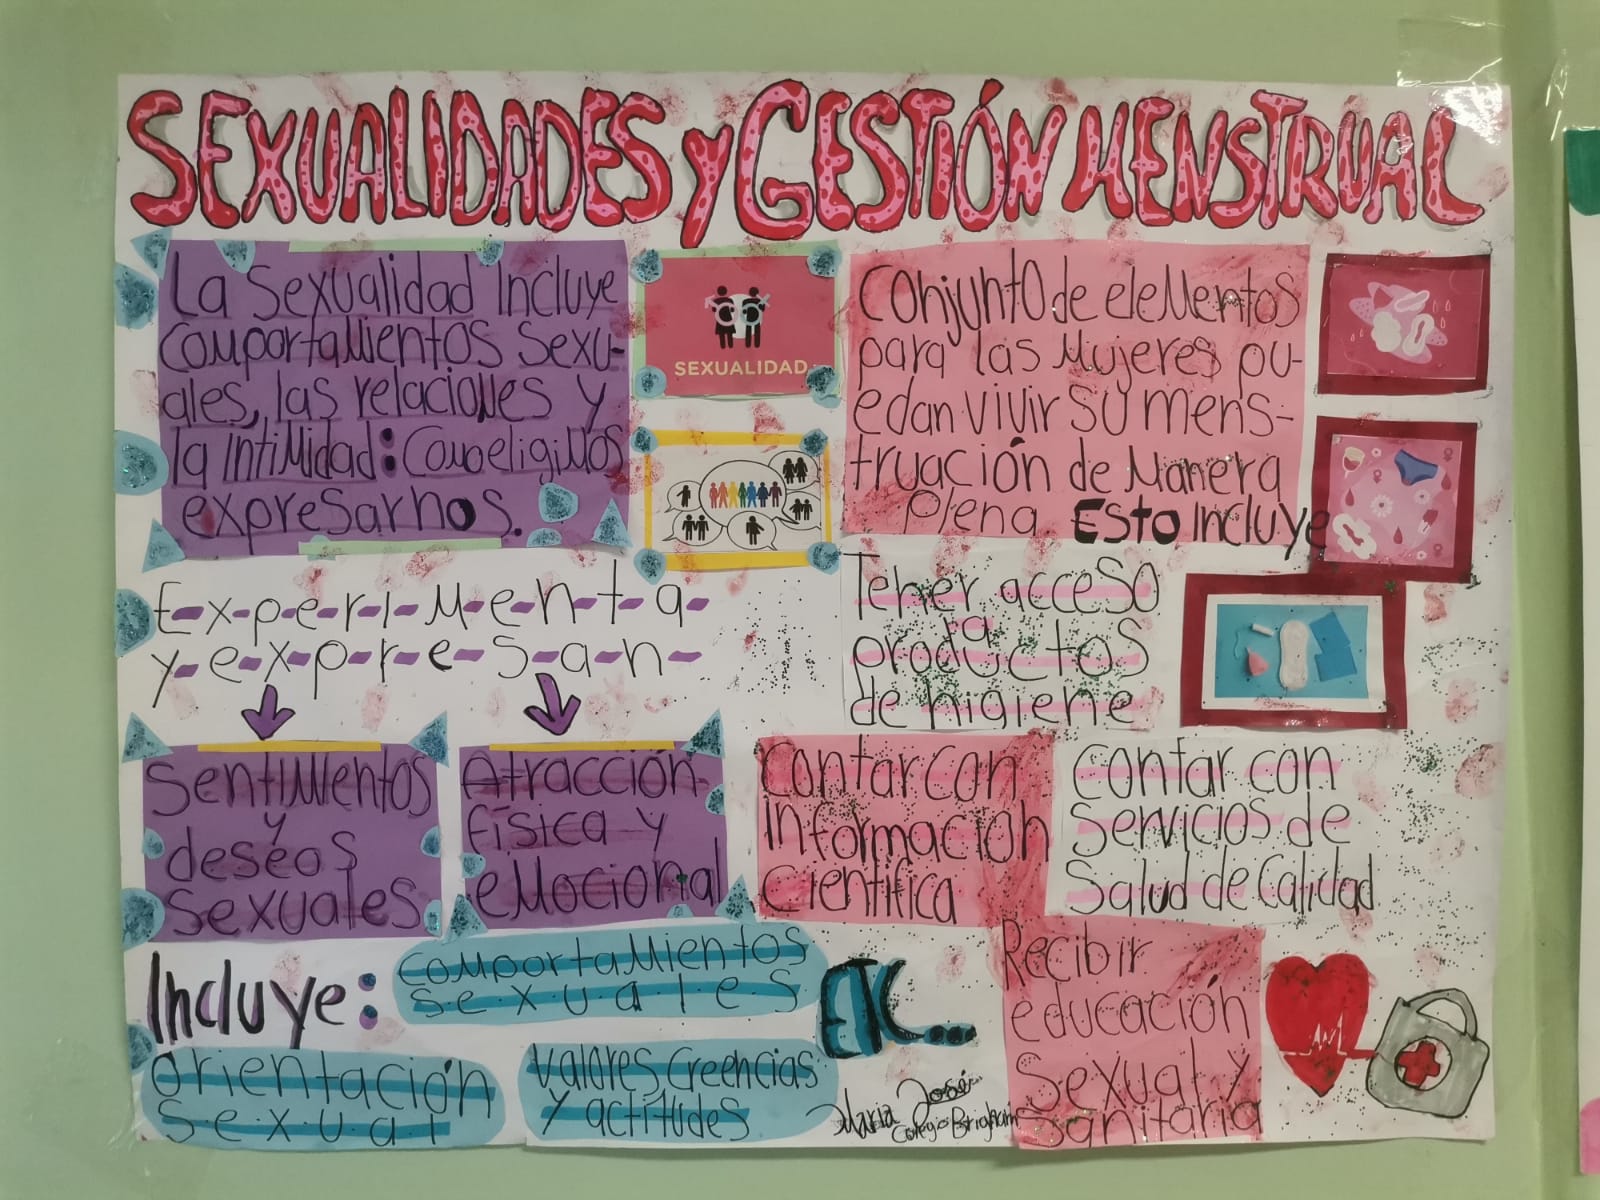 SEXUALIDADES Y GESTIÓN MENSTRUAL
La Sexualidad Incluye
comportamientos sexu-
ales, las relaciones y
la intimidad: Como eligimos
expresarnos.
SEXUALIDAD
E-x-p-e-r-i-m-e-n-t-a-
y-e-x-p-r-e-s-a-n-
Sentimientos
y
deseos
sexuales
Atracción
física y
emocional
Incluye:
comportamientos
s e x u a l e s
orientación
s.e.x.u.a.l
valores, creencias
y actitudes
ETC...
Conjunto de elementos
para las mujeres pu-
edan vivir su mens-
truación de Manera
Plena Esto Incluye
Tener acceso
a
productos
de higiene
Contar con
Información
Científica
Contar con
Servicios de
Salud de Calidad
Recibir
educación
Sexual y
Sanitaria
María José
Colegio Brigham